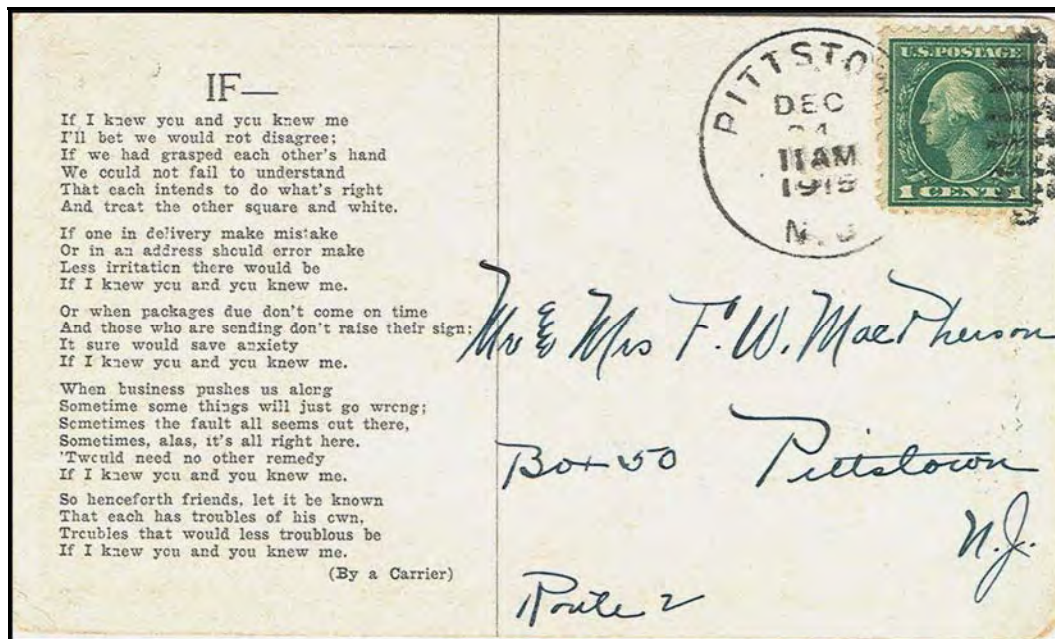 IF—
If I knew you and you knew me
I'll bet we would not disagree;
If we had grasped each other's hand
We could not fail to understand
That each intends to do what's right
And treat the other square and white.
If one in delivery make mistake
Or in an address should error make
Less irritation there would be
If I knew you and you knew me.
Or when packages due don't come on time
And those who are sending don't raise their sign;
It sure would save anxiety
If I knew you and you knew me.
When business pushes us along
Sometime some things will just go wrong;
Sometimes the fault all seems out there,
Sometimes, alas, it's all right here.
'Twould need no other remedy
If I knew you and you knew me.
So henceforth friends, let it be known
That each has troubles of his own,
Troubles that would less troublous be
If I knew you and you knew me.
(By a Carrier)
PITTSTO
DEC
11AM
N.J
U.S. POSTAGE
1 CENT 1
Mr & Mrs F. W. MacPherson
Box 50 Pittstown
N.J.
Route 2